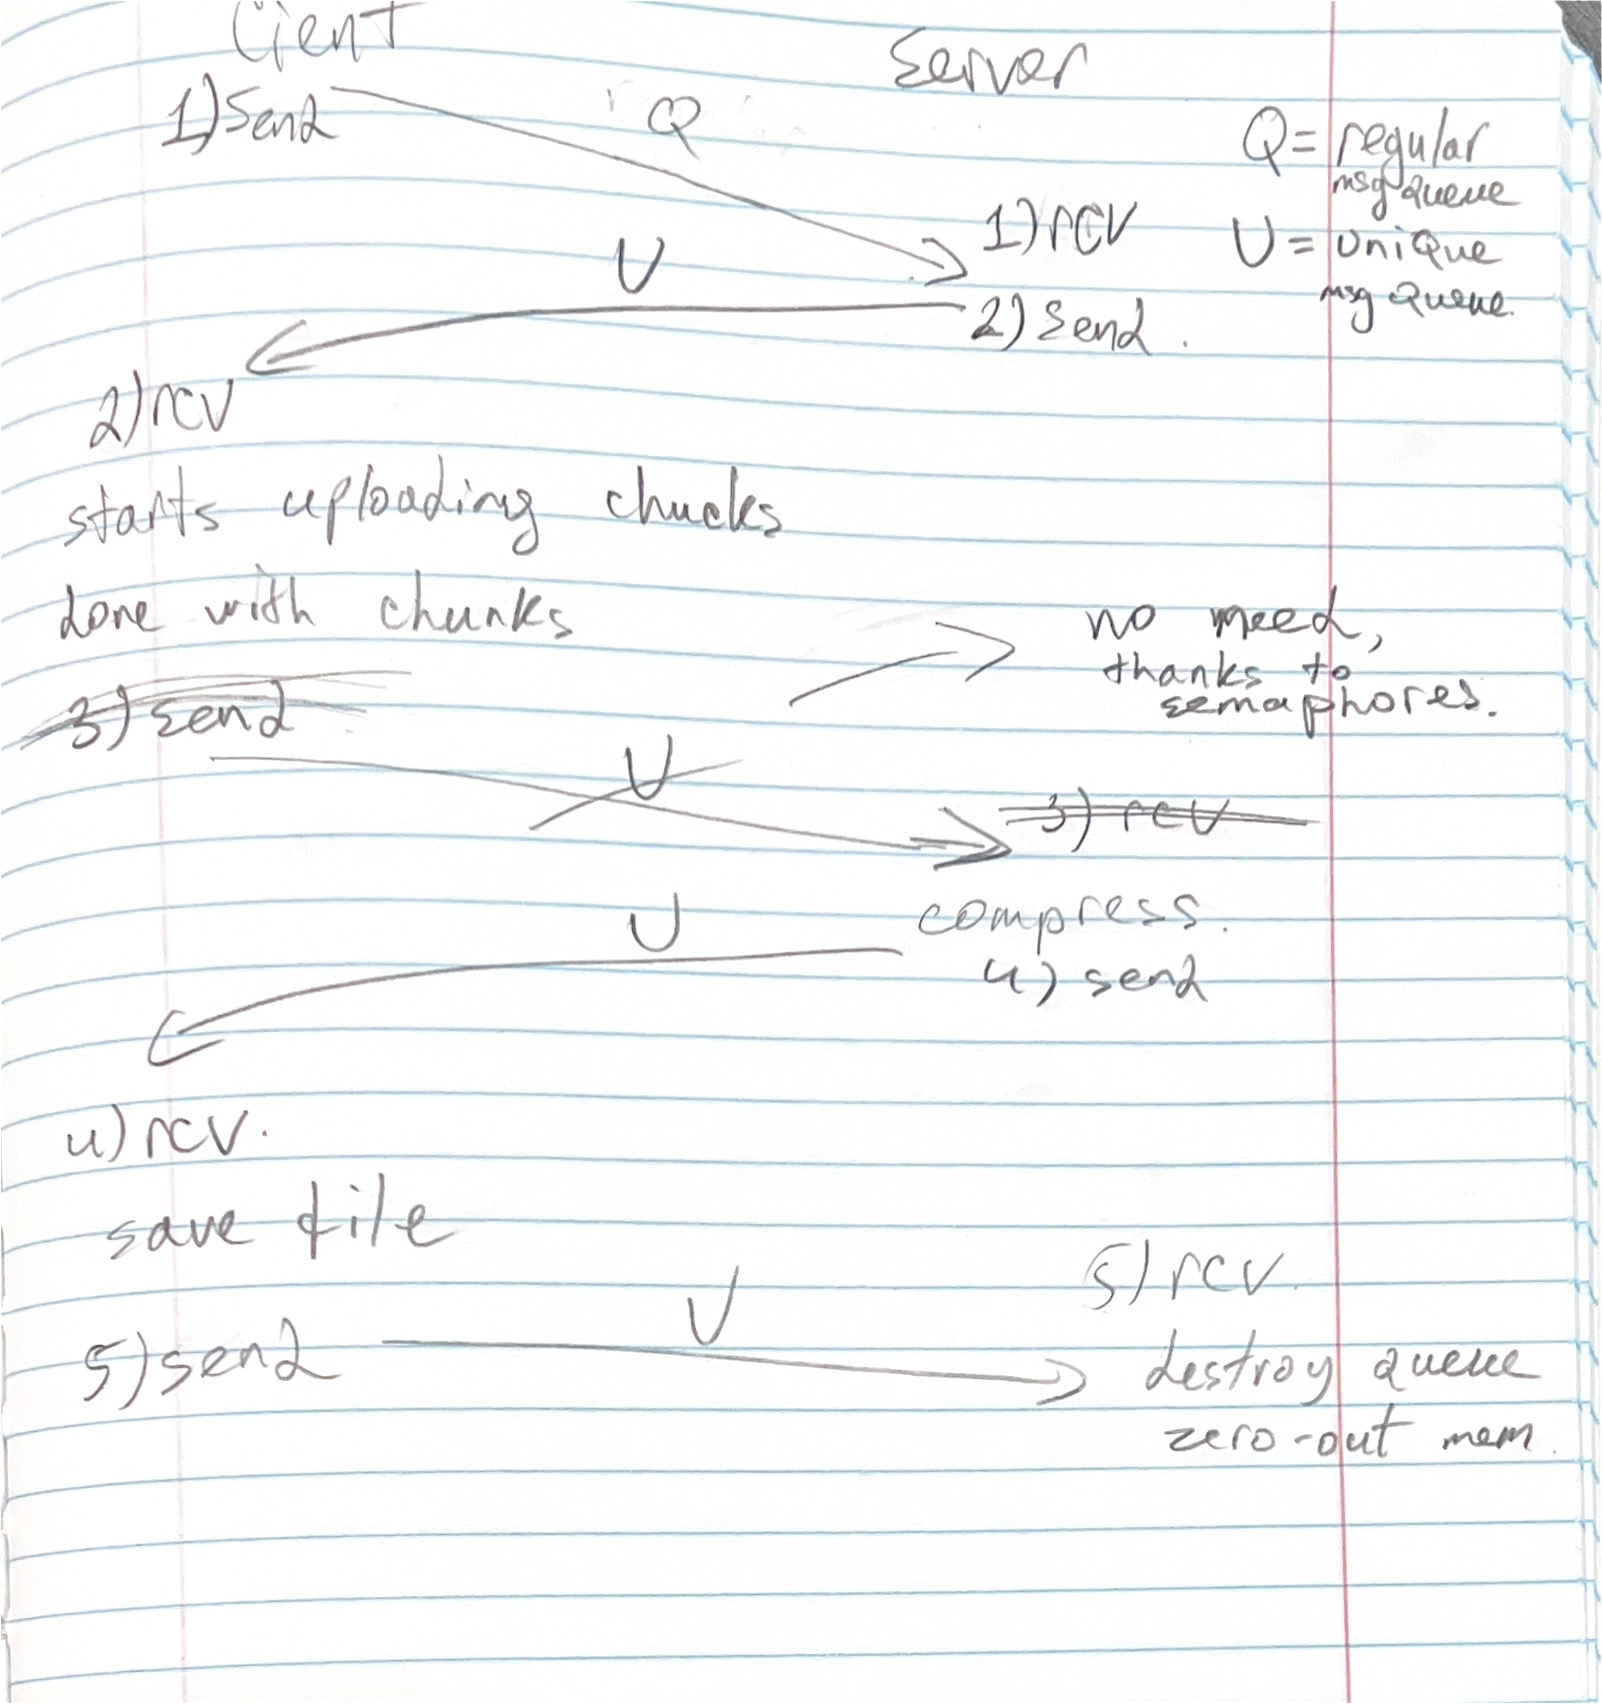 Client
Server
1) Send
Q
Q = regular
msg queue
1) rcv
U = unique
msg queue.
U
2) Send.
2) rcv
starts uploading chucks
done with chunks
no need,
thanks to
semaphores.
3) send
U
3) rcv
compress.
U
4) send
4) rcv.
save file
5) rcv.
U
5) send
destroy queue
zero-out mem.